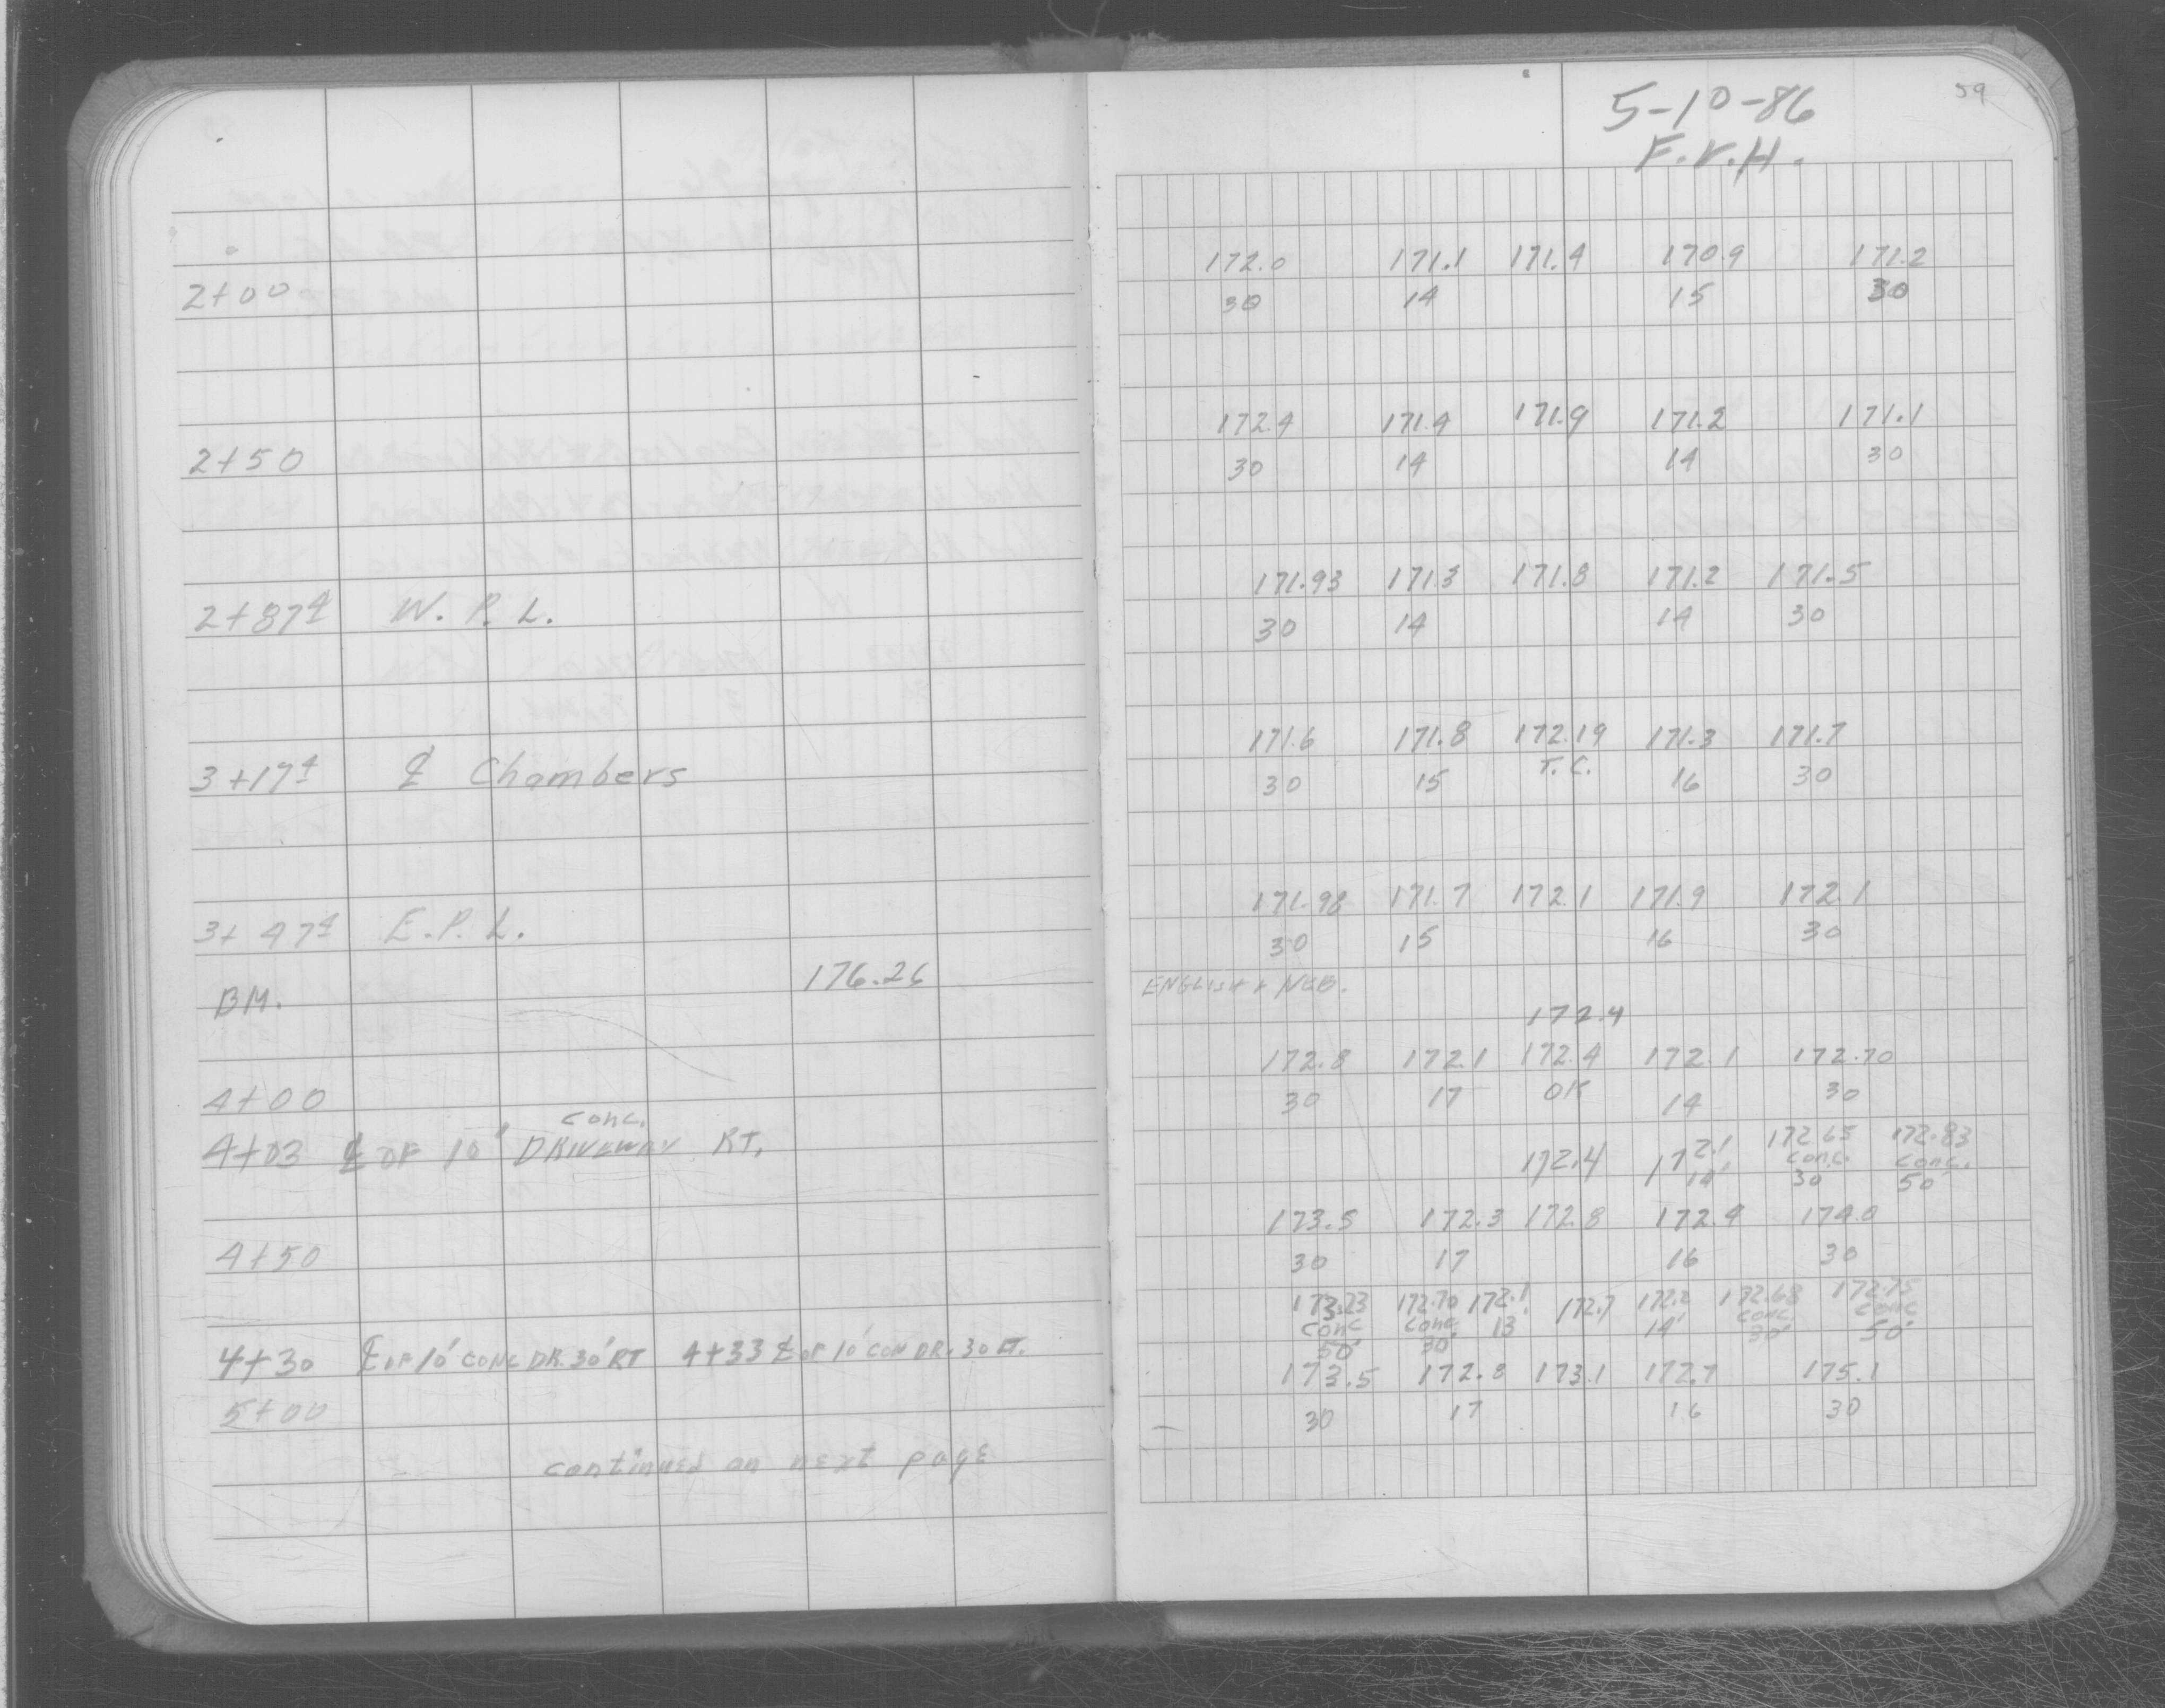 59
5-10-86
F.V.H.
172.0 171.1 171.4 170.9 171.2
2+00 30 14 15 30
172.4 171.4 171.9 171.2 171.1
2+50 30 14 14 30
171.93 171.3 171.8 171.2 171.5
2+87⁴ W. P. L. 30 14 14 30
171.6 171.8 172.19 171.3 171.7
T. C.
3+17⁴ ℄ Chambers 30 15 16 30
171.98 171.7 172.1 171.9 172.1
3+47⁴ E. P. L. 30 15 16 30
BM. 176.26 ENGLISH + NEB.
172.4
172.8 172.1 172.4 172.1 172.70
4+00 30 17 OK 14 30
conc.
4+03 ℄ OF 10' DRIVEWAY RT. 172.4 172.1 172.65 172.83
conc. conc.
14' 30 50'
173.5 172.3 172.8 172.4 174.0
4+50 30 17 16 30
173.23 172.70 172.1 172.7 172.2 172.68 172.75
conc conc. 13 14' conc. conc
50' 30' 30' 50'
4+30 ℄ OF 10' CONC DR. 30' RT 4+33 ℄ OF 10' CON DR. 30
173.5 172.8 173.1 172.7 175.1
5+00 30 17 16 30
continued on next page